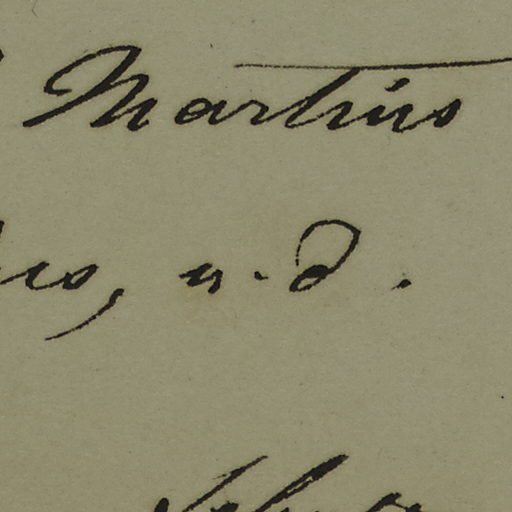 Martius
us, n.d.